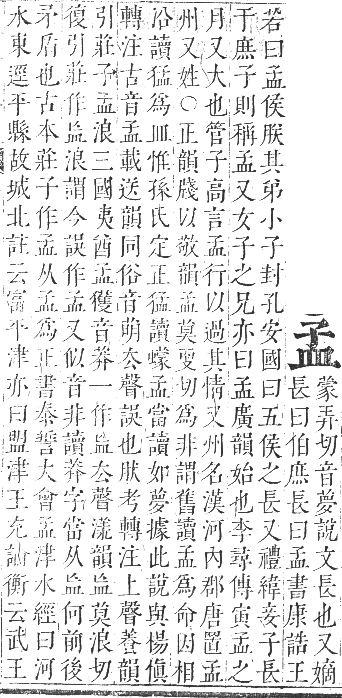 孟
蒙弄切音夢說文長也又嫡
長曰伯庶長曰孟書康誥王
若曰孟侯朕其弟小子封孔安國曰五侯之長又禮緯妾子長
于庶子則稱孟又女子之兄亦曰孟廣韻始也李尋傳寅孟之
月又大也管子高言孟行以過其情又州名漢河內郡唐置孟
州又姓○正韻牋以敬韻孟莫更切爲非謂舊讀孟爲命因相
沿讀猛爲皿惟孫氏定正猛讀蠓孟當讀如夢據此說與楊愼
轉注古音孟載送韻同俗音萌去聲誤也肰考轉注上聲養韻
引莊子孟浪三國夷酋孟獲音莽一作去聲漾韻莫浪切
復引莊作浪謂今誤作孟又似音非讀莽字當从何前後
矛盾也古本莊子作孟从孟爲正書泰誓大會孟津水經曰河
水東逕平縣故城北註云富平津亦曰盟津王充論衡云武王